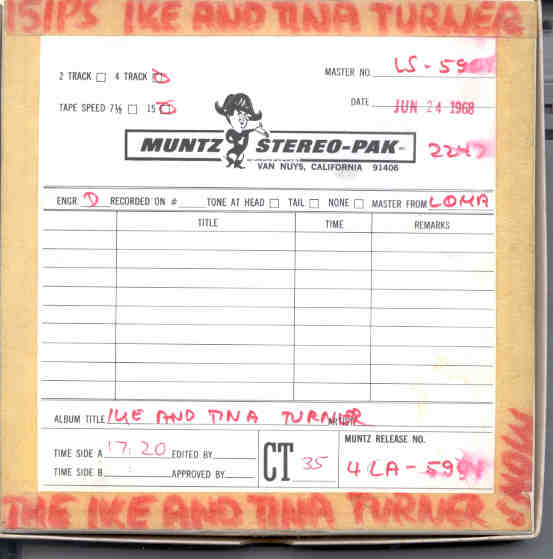 15IPS IKE AND TINA TURNER
2 TRACK 4 TRACK MASTER NO. LS-5904
TAPE SPEED 7½ 15 DATE JUN 24 1968
MUNTZ STEREO-PAK 2247
VAN NUYS, CALIFORNIA 91406
ENGR. D RECORDED ON # TONE AT HEAD TAIL NONE MASTER FROM LOMA
TITLE TIME REMARKS
ALBUM TITLE IKE AND TINA TURNER ARTIST
TIME SIDE A 17:20 EDITED BY CT 35 MUNTZ RELEASE NO.
TIME SIDE B : APPROVED BY 4LA-5904
THE IKE AND TINA TURNER
SHOW